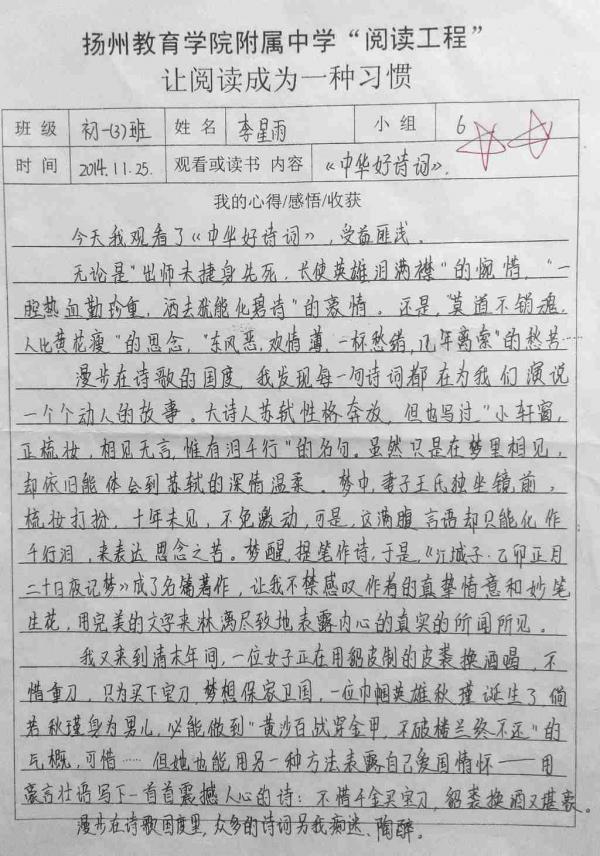 扬州教育学院附属中学“阅读工程”
让阅读成为一种习惯
班级 初一(3)班 姓名 李星雨 小组 6
时间 2014.11.25. 观看或读书内容 《中华好诗词》.
我的心得/感悟/收获
今天我观看了《中华好诗词》，受益匪浅.
无论是“出师未捷身先死，长使英雄泪满襟”的惋惜，“一
腔热血勤珍重，洒去犹能化碧诗”的豪情。还是，“莫道不销魂，
人比黄花瘦”的思念，“东风恶，欢情薄，一杯愁错，几年离索”的愁苦……
漫步在诗歌的国度，我发现每一句诗词都在为我们演说
一个个动人的故事。大诗人苏轼性格奔放，但也写过“小轩窗，
正梳妆，相见无言，惟有泪千行”的名句。虽然只是在梦里相见，
却依旧能体会到苏轼的深情温柔。梦中，妻子王氏独坐镜前，
梳妆打扮，十年未见，不免激动，可是，这满腹言语却只能化作
千行泪，来表达思念之苦。梦醒，提笔作诗，于是，《江城子·乙卯正月
二十日夜记梦》成了名篇著作，让我不禁感叹作者的真挚情意和妙笔
生花，用完美的文字来淋漓尽致地表露内心的真实的所闻所见。
我又来到清末年间，一位女子正在用貂皮制的皮裘换酒喝，不
惜重刀，只为买下宝刀，梦想保家卫国，一位巾帼英雄秋瑾诞生了，倘
若秋瑾身为男儿，必能做到“黄沙百战穿金甲，不破楼兰终不还”的
气概，可惜……但她也能用另一种方法表露自己爱国情怀——用
豪言壮语写下一首首震撼人心的诗：不惜千金买宝刀，貂裘换酒又堪豪。
漫步在诗歌国度里，众多的诗词另我痴迷、陶醉。